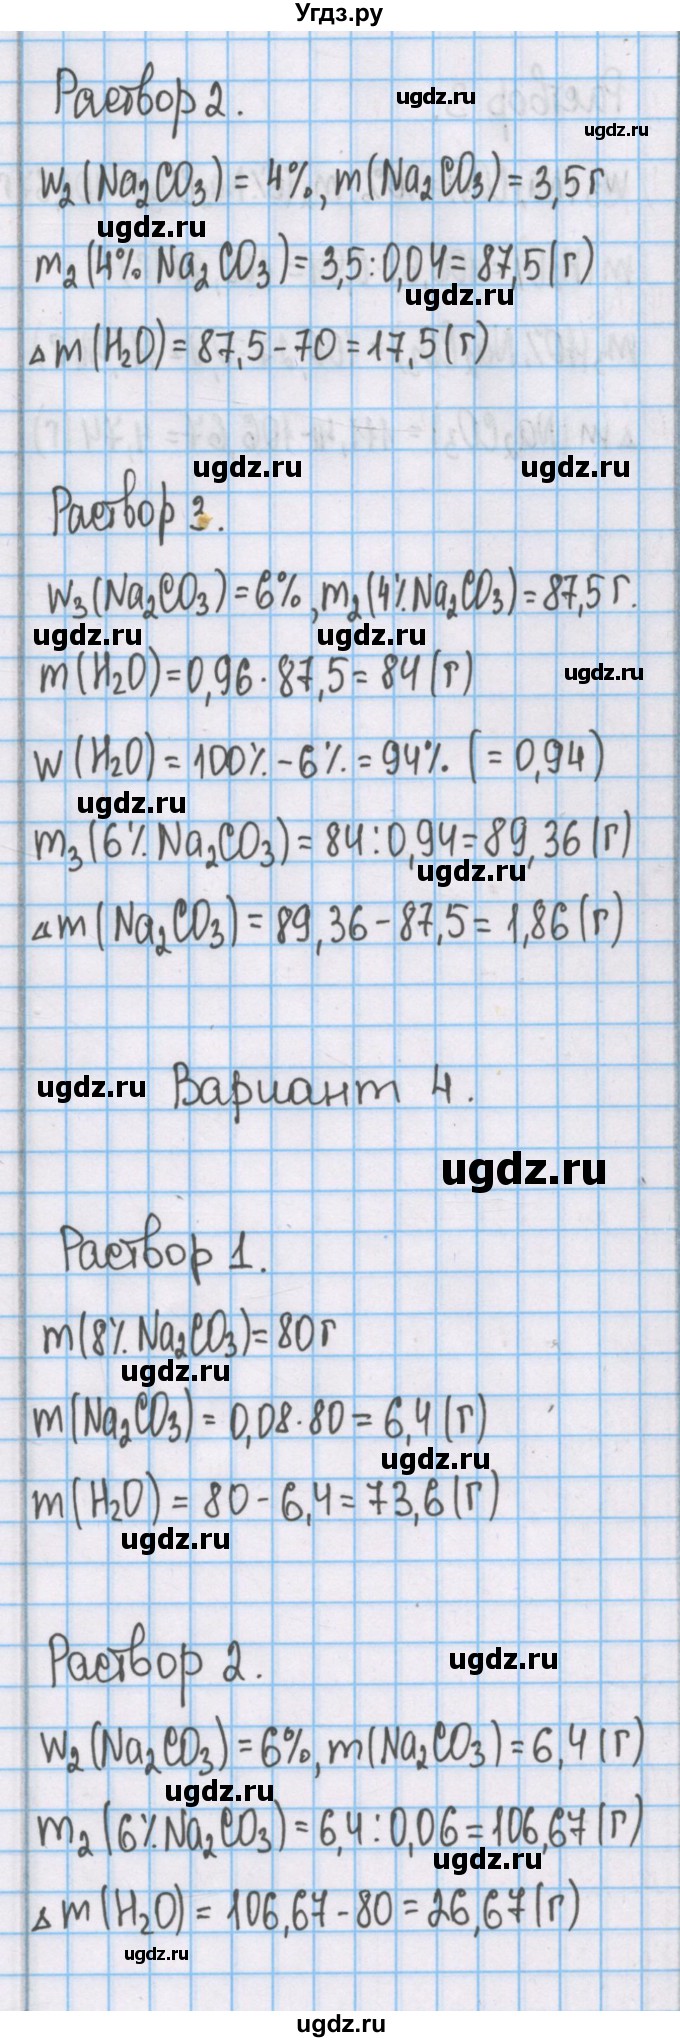 Угдз.ру
Раствор 2.
ugdz.ru
ugdz.ru
w₂(Na₂CO₃) = 4%, m(Na₂CO₃) = 3,5 г
ugdz.ru
m₂(4% Na₂CO₃) = 3,5 : 0,04 = 87,5 (г)
ugdz.ru
△m(H₂O) = 87,5 - 70 = 17,5 (г)
ugdz.ru ugdz.ru
Раствор 3.
w₃(Na₂CO₃) = 6%, m₂(4% Na₂CO₃) = 87,5 г.
ugdz.ru ugdz.ru
m(H₂O) = 0,96 · 87,5 = 84 (г)
ugdz.ru
w(H₂O) = 100% - 6% = 94%. (= 0,94)
ugdz.ru
m₃(6% Na₂CO₃) = 84 : 0,94 = 89,36 (г)
ugdz.ru
△m(Na₂CO₃) = 89,36 - 87,5 = 1,86 (г)
ugdz.ru
Вариант 4.
ugdz.ru
Раствор 1.
m(8% Na₂CO₃) = 80 г
ugdz.ru
m(Na₂CO₃) = 0,08 · 80 = 6,4 (г)
ugdz.ru
m(H₂O) = 80 - 6,4 = 73,6 (г)
ugdz.ru
Раствор 2.
ugdz.ru
w₂(Na₂CO₃) = 6%, m(Na₂CO₃) = 6,4 (г)
ugdz.ru
m₂(6% Na₂CO₃) = 6,4 : 0,06 = 106,67 (г)
ugdz.ru
△m(H₂O) = 106,67 - 80 = 26,67 (г)
ugdz.ru
ugdz.ru